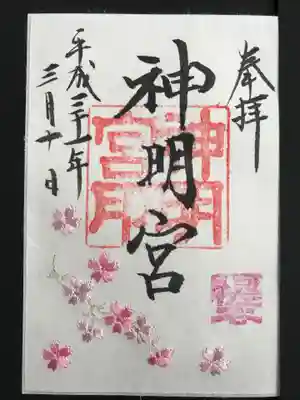 奉拝
神明宮
平成三十一年
三月十日
神明